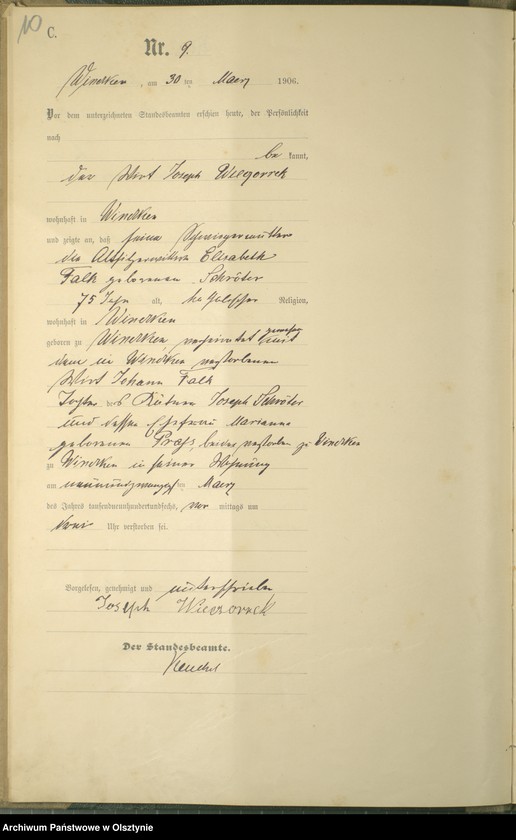 10
C.
Nr. 9.
Windtken, am 30 ten Maerz 1906.
Vor dem unterzeichneten Standesbeamten erschien heute, der Persönlichkeit
nach
be kannt,
der Wirt Joseph Wieczorrek
wohnhaft in Windtken
und zeigte an, daß seine Schwiegermutter
die Altsitzerwittwe Elisabeth
Falk geborenen Schröter
75 Jahr alt, katholischer Religion,
wohnhaft in Windtken
geboren zu Windtken, verheiratet gewesen mit
dem in Windtken verstorbenen
Wirt Johann Falk
Tochter des Kätners Joseph Schröter
und dessen Ehefrau Marianna
geborenen beide verstorben zu Windtken
zu Windtken in seiner Wohnung
am neunundzwanzigsten Maerz
des Jahres tausendneunhundertundsechs, vor mittags um
drei Uhr verstorben sei.
Vorgelesen, genehmigt und unterschrieben
Joseph Wieczorrek
Der Standesbeamte.
Archiwum Państwowe w Olsztynie